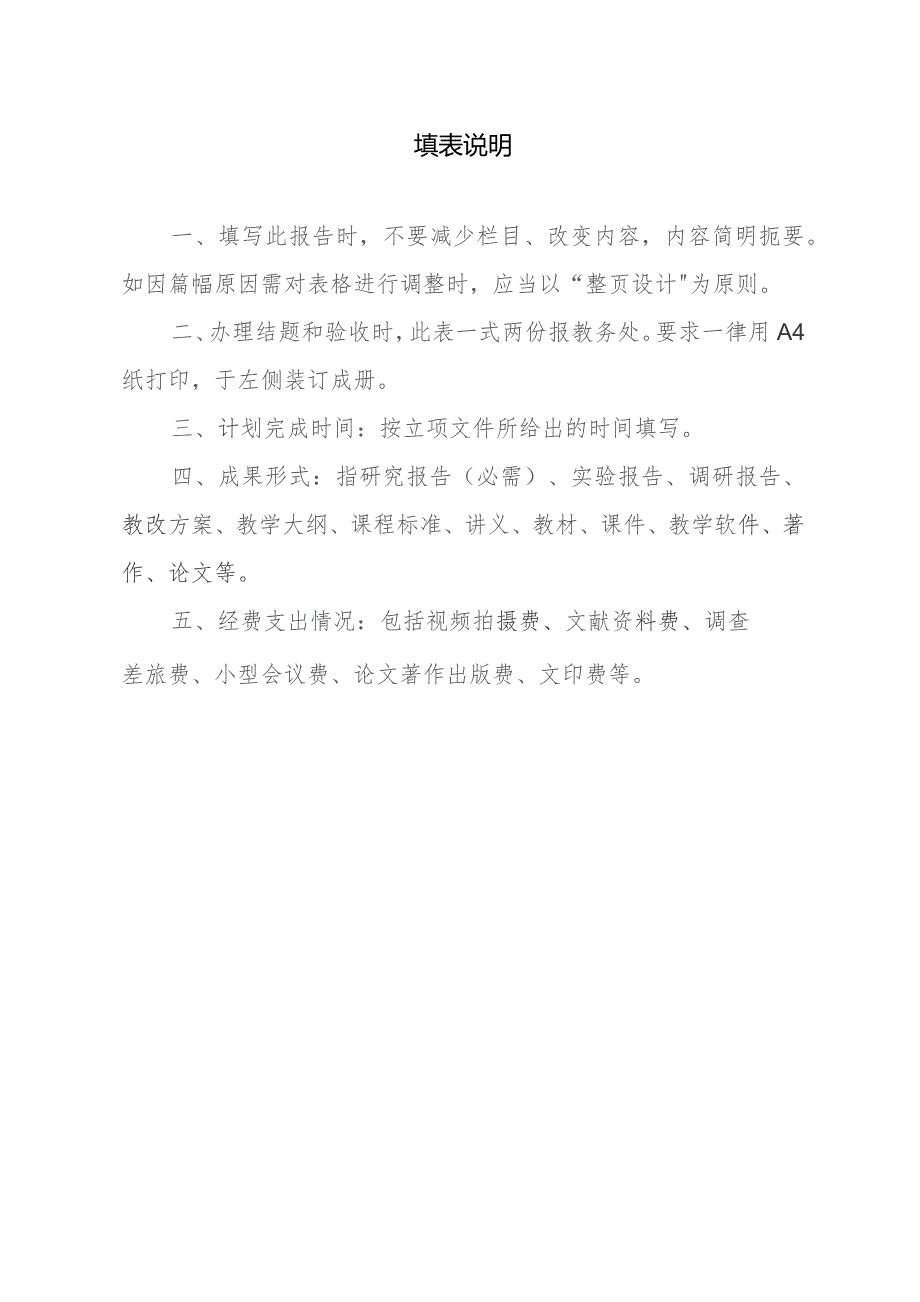 填表说明
一、填写此报告时，不要减少栏目、改变内容，内容简明扼要。
如因篇幅原因需对表格进行调整时，应当以“整页设计"为原则。
二、办理结题和验收时，此表一式两份报教务处。要求一律用A4
纸打印，于左侧装订成册。
三、计划完成时间：按立项文件所给出的时间填写。
四、成果形式：指研究报告（必需）、实验报告、调研报告、
教改方案、教学大纲、课程标准、讲义、教材、课件、教学软件、著
作、论文等。
五、经费支出情况：包括视频拍摄费、文献资料费、调查
差旅费、小型会议费、论文著作出版费、文印费等。